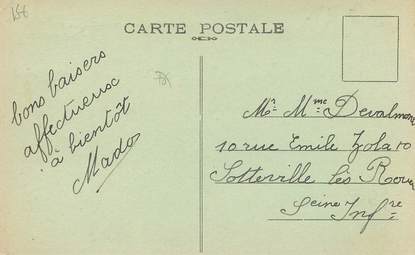 158
CARTE POSTALE
bons baisers
affectueux
à bientôt
Mado
Mr Mme Devalmont
10 rue Emile Zola 10
Sotteville lès Rouen
Seine Infre